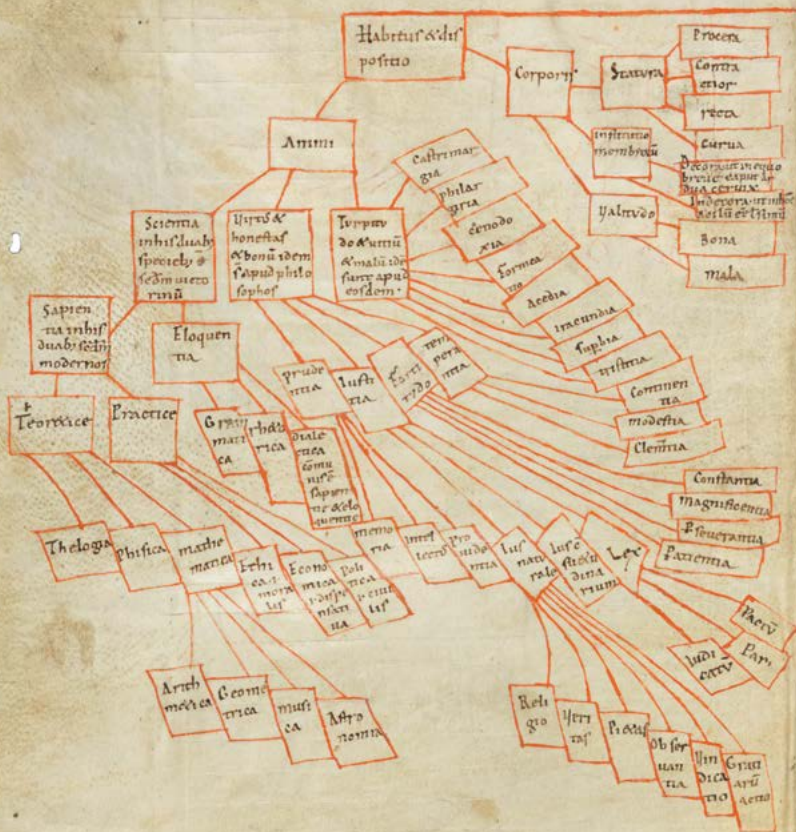 Habitus & dis
positio
Corporis
Statura
Procera
Contra
ctior
recta
Curua
institutio
membrorū
Decora ut in equo
breue caput ar
dua ceruix
Indecora ut
Valitudo
Bona
Mala
Animi
Scientia
in his duab;
specieb;
scdm uicto
rinū
Virtus &
honestas
& bonū idem
s apud philo
sophos
Turpitu
do & uitiū
& malū idē
sunt apud
eosdem.
Castrimar
gia
philar
giria
Cenodo
xia
Fornica
tio
Acedia
iracundia
Supbia
tristitia
Continen
tia
modestia
Clemtia
Constantia
Magnificentia
Pseuerantia
Patientia
Sapien
tia in his
duab; scdm
modernos
Eloquen
tia
prude
ntia
Iusti
tia
Forti
tudo
tem
pera
ntia
Teorice
Practice
Gram
mati
ca
rheto
rica
diale
ctica
cōmu
nis ē
sapien
tie & elo
quentie
Thelogia
Phisica
mathe
matica
Ethi
ca
mora
lis
Econo
mica
dispe
nsati
ua
Poli
tica
ciuilis
memo
ria
inte
llectus
Pro
uide
ntia
Ius
natu
rale
Ius cō
suetu
dina
rium
Lex
Pactū
Pari
Iudi
catū
Arith
metica
Geome
trica
musi
ca
Astro
nomia
Reli
gio
Veri
tas
Pietas
Obser
uan
tia
Vin
dica
tio
Grati
arū
actio